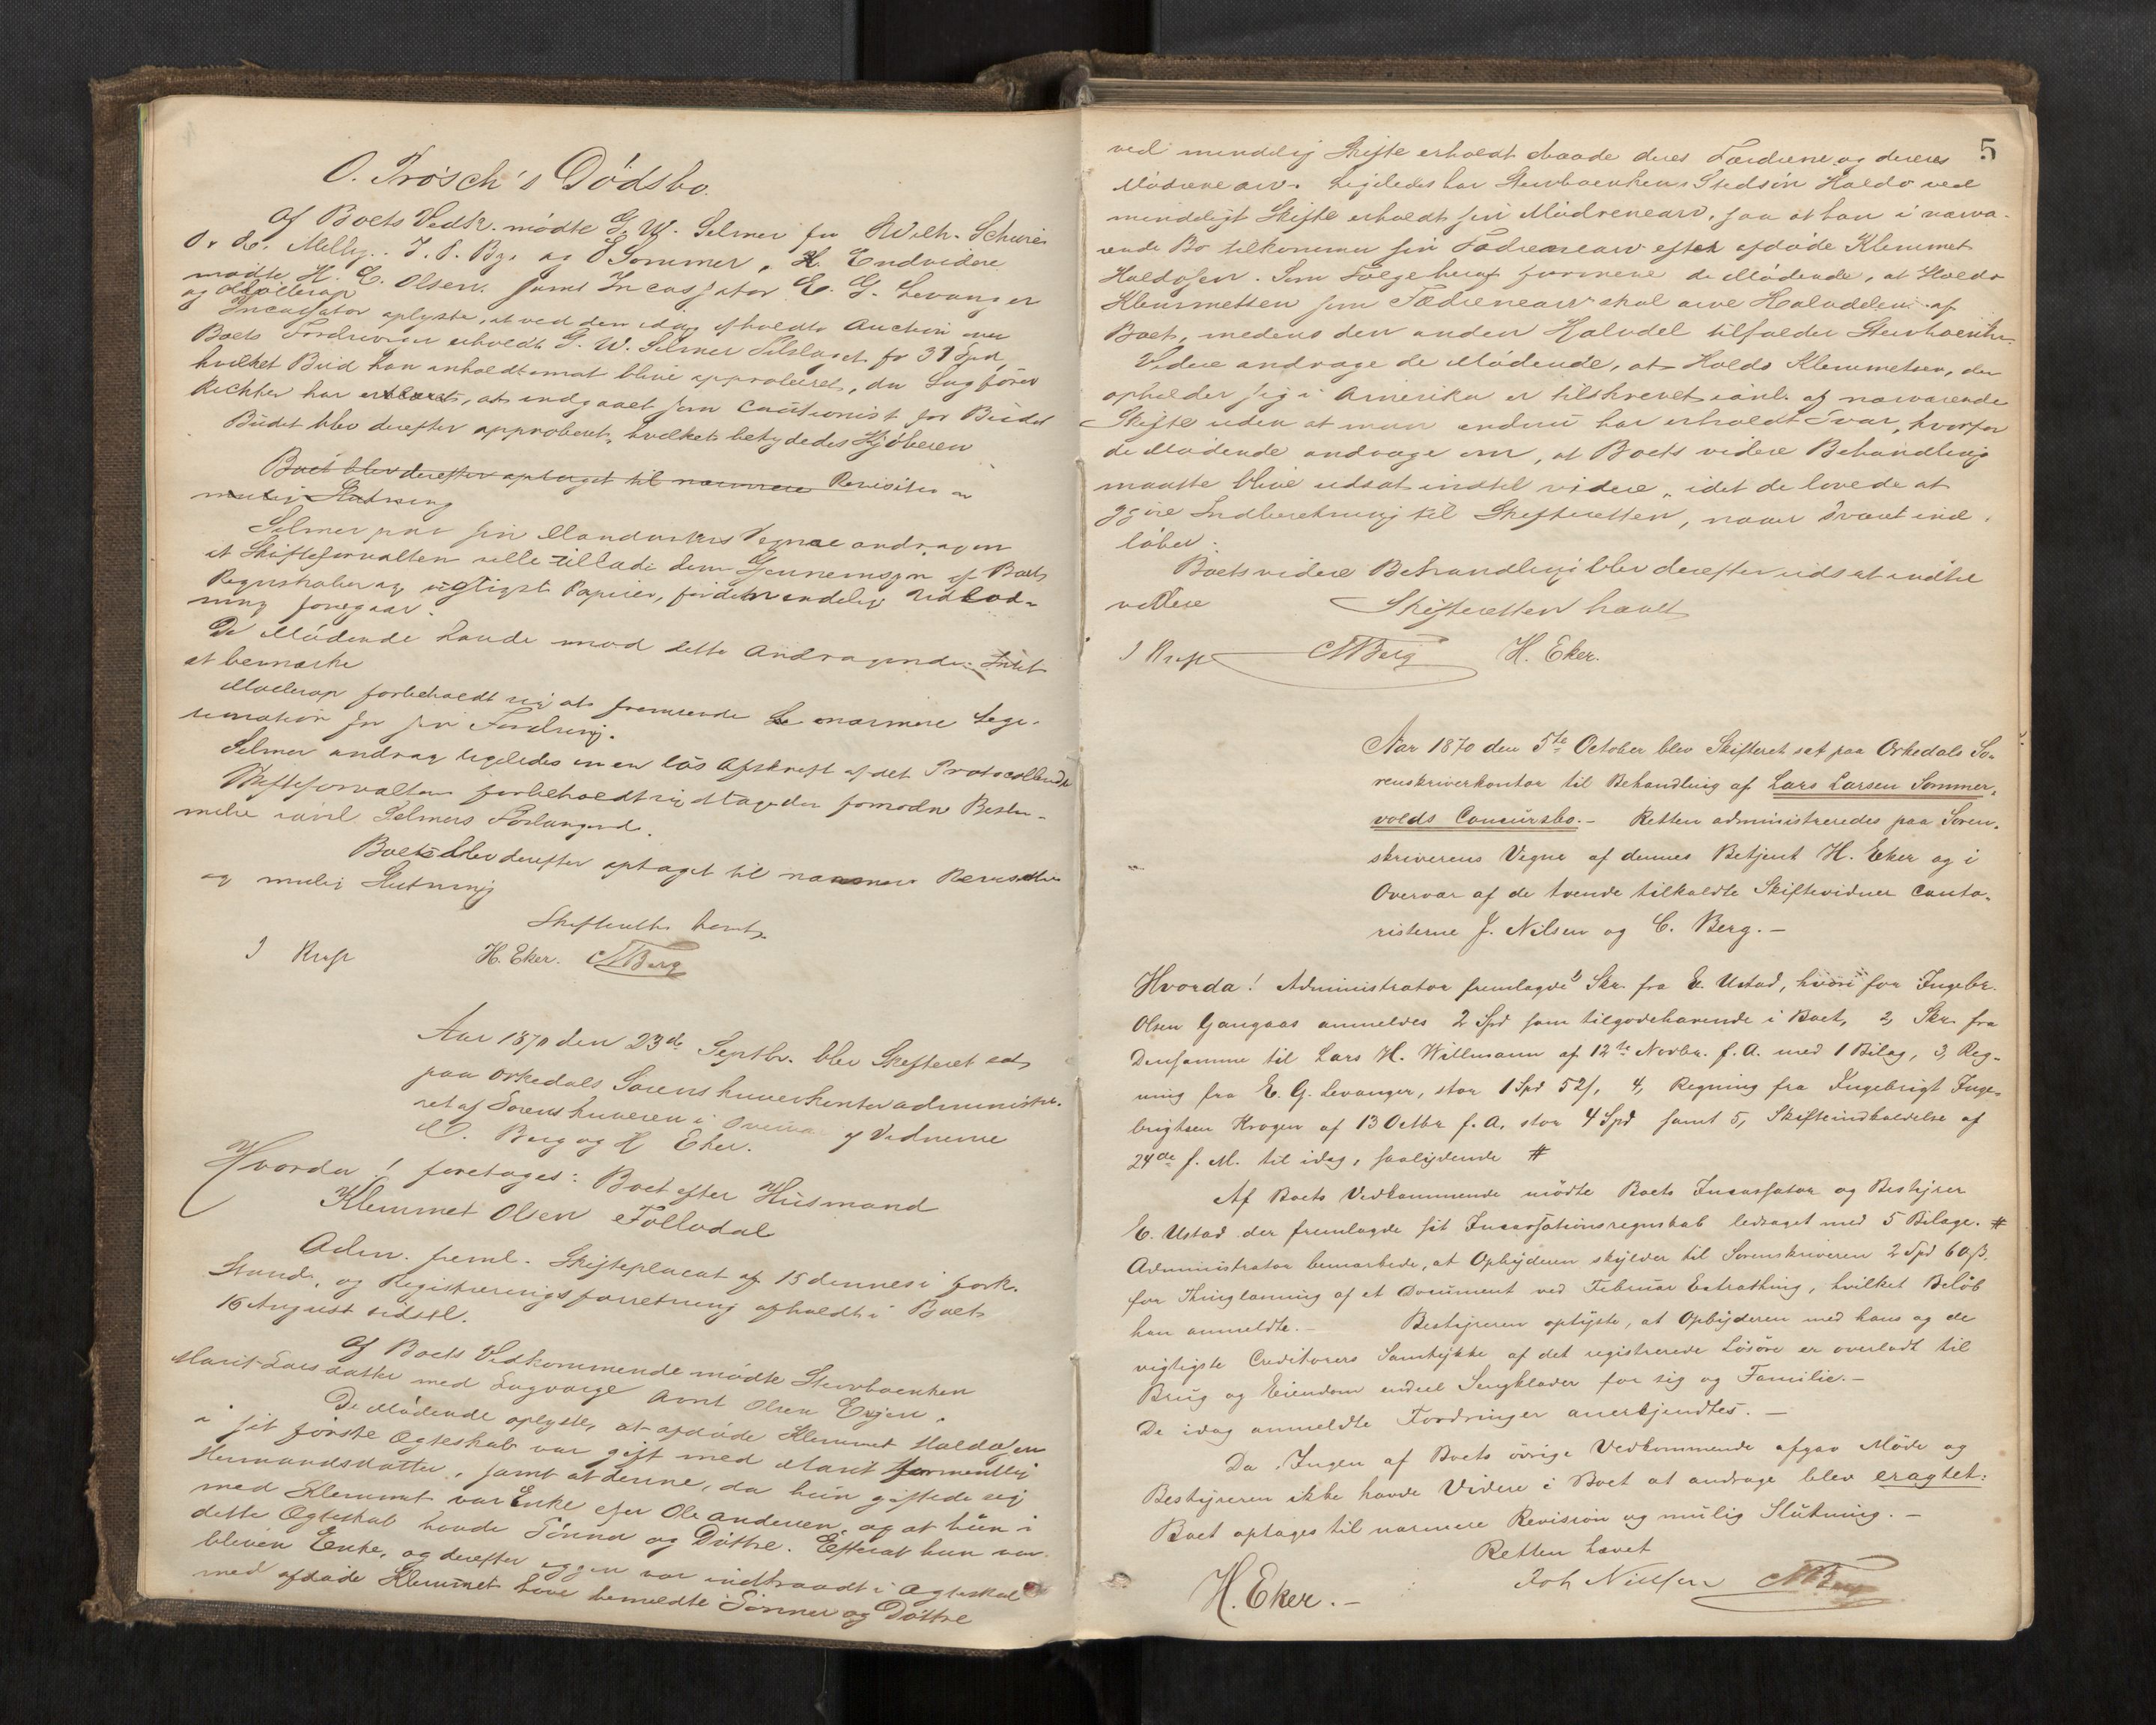 O. Trösch's Dödsbo.
Af Boets Vedk. mødte G. W. Selmer for Wilh. Schreiner
O. & Melbye. J. P. By. og E Sommer, H. Endvidere
mødte H. C. Olsen. samt Incassator E. G. Levanger
og Møllerop
Incassator oplyste, at ved den idag afholdte Auction over
Boets Fordringer erholdt G. W. Selmer Tilslaget for 31 Spd,
hvilket Bud han anholdt om at blive approberet, da Sagfører
Richter har erklæret, at indgaaet som Cautionist for Budet
Budet blev derefter approberet, hvilket betydedes Kjøberen
Boet blev derefter optaget til nærmere Revision og
mulig Slutning
Selmer paa sin Mandants Vegne androg om
at Skifteforvalten vilde tillade dem Gjennemsyn af Boets
Regnskaber og vigtigste Papirer, førden endelig Udlod-
ning foregaar.
De Mødende havde mod dette Andragende Intet
at bemærke
Møllerop forbeholdt sig at fremsende nærmere Legi-
timation for sin Fordring.
Selmer androg ligeledes om en løs Afskrift af det Protocollerede
Skifteforvalten forbeholdt sig at tage den fornødne Bestem-
melse i anl. Selmers Forlangende.
Boet blev derefter optaget til nærmere Revision
og mulig Slutning
Skifteretten hævet.
J Krefs H. Eker. C Berg
Aar 1870 den 23de Septbr. blev Skifteret sat
paa Orkedals Sorenskriverkontor administre-
ret af Sorenskriveren i Overvær af Vidnerne
C. Berg og H Eker.
Hvorda! foretoges: Boet efter Husmand
Klemmet Olsen Follodal
Adm. freml. Skifteplacat af 15 dennes i fork.
Stand, og Registreringsforretning afholdt i Boet
16 August sidstl.
Af Boets Vedkommende mødte Stervboenken
Marit Larsdatter med Lagværge Arnt Olsen Evjen.
De Mødende oplyste, at afdøde Klemmet Haldosen
i sit første Ægteskab var gift med Marit formentlig
Hermundsdatter, samt at denne, da hun giftede sig
med Klemmet var Enke efter Ole Andersen, og at hun i
dette Ægteskab havde Sønner og Døttre. Efterat hun var
bleven Enke, og derefter igjen var indtraadt i Ægteskab
med afdøde Klemmet have bemeldte Sønner og Døttre
5
ved mindelig Skifte erholdt baade deres Fædrene og deres
Mødrene arv. Ligeledes har Stervboenkens Stedsøn Haldo ved
mindeligt Skifte erholdt sin Mødrenearv, saa at han i nærvæ-
rende Bo tilkommer sin Fædrenearv efter afdøde Klemmet
Haldosen. Som Følge heraf formene de Mødende, at Haldo
Klemmetsen som Fædrenearv skal arve Halvdelen af
Boet, medens den anden Halvdel tilfalder Stervboenken.
Videre androge de Mødende, at Haldo Klemmetsen, der
opholder sig i Amerika er tilskrevet i anl. af nærværende
Skifte uden at man endnu har erholdt Svar, hvorfor
de Mødende androge om, at Boets videre Behandling
maatte blive udsat indtil videre, idet de lovede at
gjøre Indberetning til Skifteretten, naar Svaret ind-
løber.
Boets videre Behandling blev derefter udsat indtil
videre Skifteretten hævet
J Krefs C Berg H. Eker.
Aar 1870 den 5te October blev Skifteret sat paa Orkedals So-
renskriverkontor til Behandling af Lars Larsen Sommer-
volds Concursbo.- Retten administreredes paa Soren-
skriverens Vegne af dennes Betjent H. Eker og i
Overvær af de tvende tilkaldte Skiftevidner Canto-
risterne J. Nilsen og C. Berg.-
Hvorda! Administrator fremlagde 1, Skr. fra E. Ustad, hvori for Ingebr.
Olsen Gangaas anmeldes 2 Spd som tilgodehavende i Boet, 2, Skr. fra
Densamme til Lars H. Willmann af 12te Novbr. f. A. med 1 Bilag, 3, Reg-
ning fra E. G. Levanger, stor 1 Spd 52 /, 4, Regning fra Ingebrigt Inge-
brigtsen Krogen af 13 Octbr f. A. stor 4 Spd samt 5, Skifteindkaldelse af
24de f. M. til idag, saalydende #
Af Boets Vedkommende mødte Boets Incassator og Bestyrer
E. Ustad der fremlagde sit Incassationsregnskab ledsaget med 5 Bilage. #
Administrator bemærkede, at Opbyderen skylder til Sorenskriveren 2 Spd 60 ß.
for Thinglæsning af et Document ved Februar Extrathing, hvilket Beløb
han anmeldte.- Bestyreren oplyste, at Opbyderen med hans og de
vigtigste Creditorers Samtykke af det registrerede Løsøre er overladt til
Brug og Eiendom endeel Sengklæder for sig og Familie.-
De idag anmeldte Fordringer anerkjendtes.-
Da Ingen af Boets øvrige Vedkommende afgav Møde og
Bestyreren ikke havde Videre i Boet at androge blev eragtet:
Boet optages til nærmere Revision og mulig Slutning.-
Retten hævet
H. Eker.- Joh Nielsen C Berg